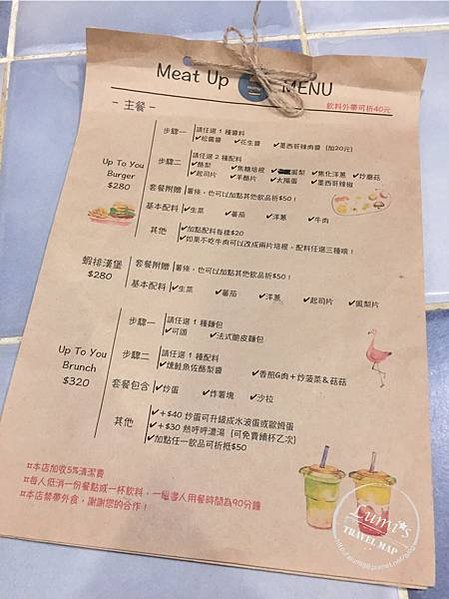 Meat Up MENU
飲料外帶可折40元
- 主餐 -
Up To You
Burger
$280
步驟一
請任選 1 種醬料
✔松露醬 ✔花生醬 ✔墨西哥辣肉醬 (加20元)
步驟二
請任選 2 種配料
✔酪梨 ✔焦糖培根 ✔鳳梨 ✔焦化洋蔥 ✔炒蘑菇
✔起司片 ✔羊酪片 ✔太陽蛋 ✔墨西哥辣椒
套餐附贈
薯條, 也可以加點其他飲品折$50!
基本配料
✔生菜 ✔蕃茄 ✔洋蔥 ✔牛肉
其他
✔加點配料每樣$20
✔如果不吃牛肉可以改成兩片培根, 配料任選三種唷!
蝦排漢堡
$280
套餐附贈
薯條, 也可以加點其他飲品折$50!
基本配料
✔生菜 ✔蕃茄 ✔洋蔥 ✔起司片 ✔鳳梨片
Up To You
Brunch
$320
步驟一
請任選 1 種麵包
✔可頌 ✔法式脆皮麵包
步驟二
請任選 1 種配料
✔燻鮭魚佐酪梨醬 ✔香煎G肉+炒菠菜&菇菇
套餐包含
✔炒蛋 ✔炸薯塊 ✔沙拉
其他
✔+$40 炒蛋可升級成水波蛋或歐姆蛋
✔+$30 熱呼呼濃湯 (可免費續杯乙次)
✔加點任一飲品可折抵$50
¤本店加收5%清潔費
¤每人低消一份餐點或一杯飲料, 一組客人用餐時間為90分鐘
¤本店禁帶外食, 謝謝您的合作!
Lumi's
TRAVEL MAP